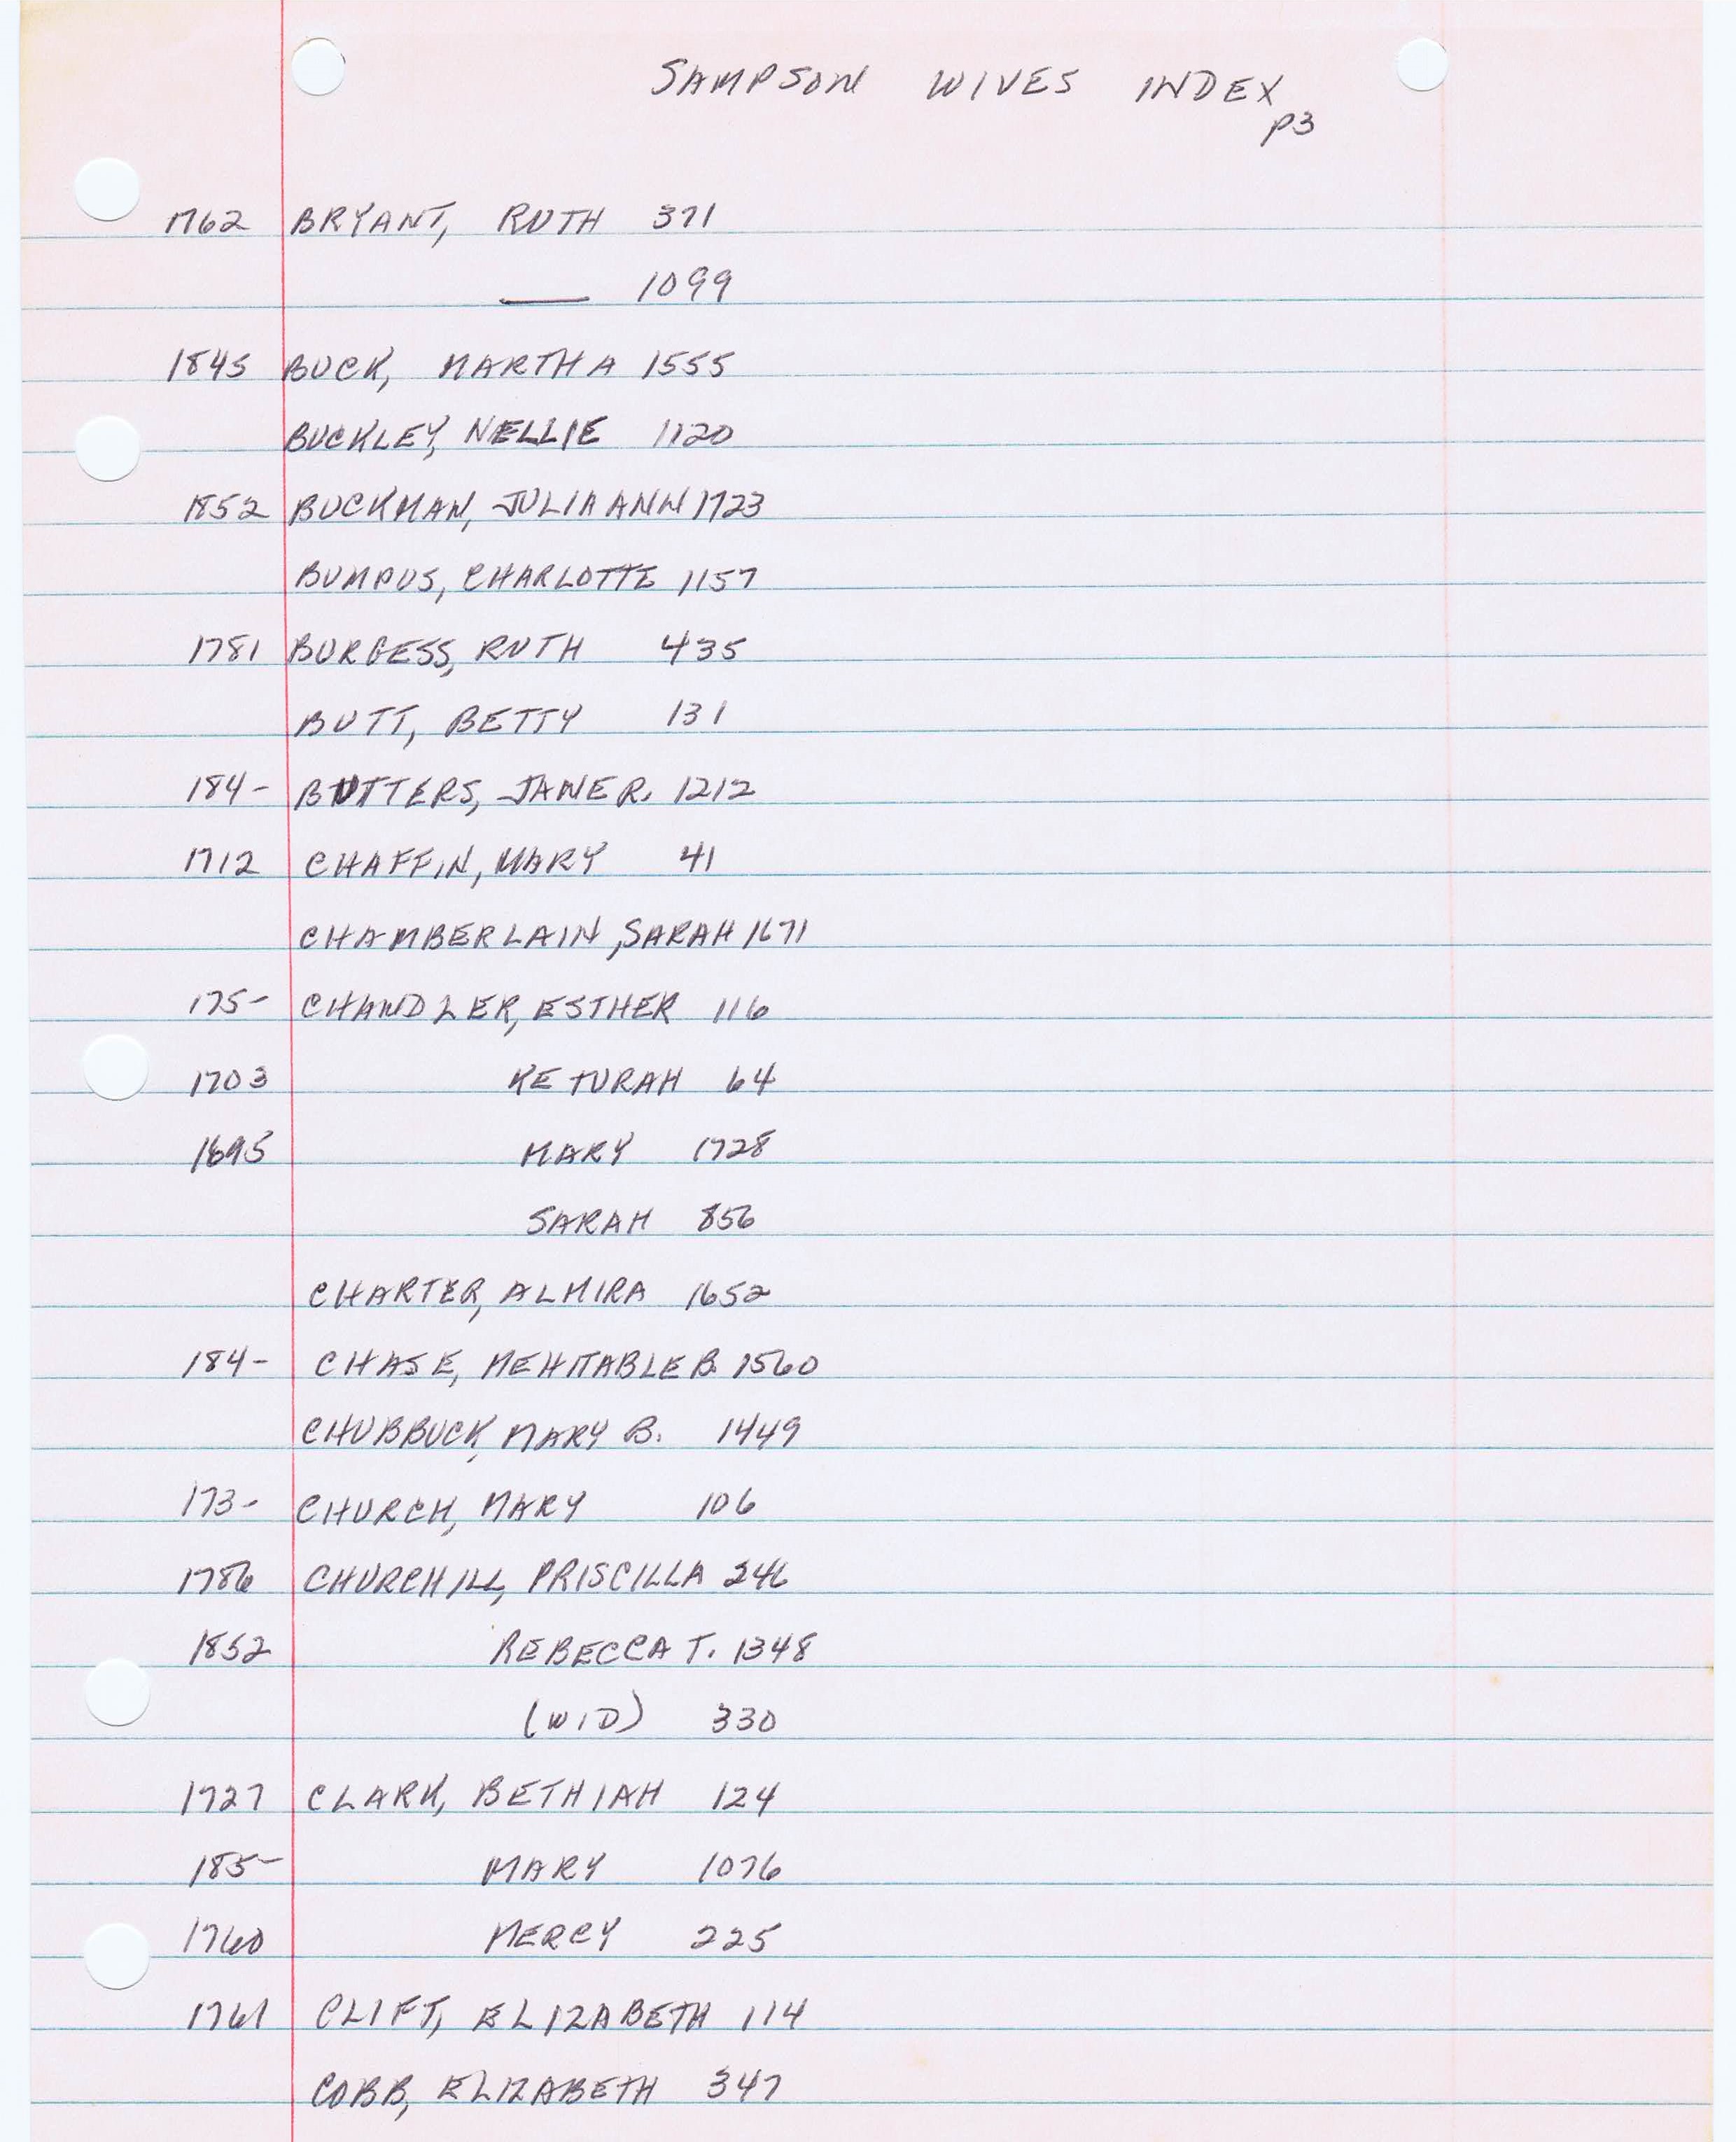 SAMPSON WIVES INDEX
p3
1762 BRYANT, RUTH 371
— 1099
1845 BUCK, MARTHA 1555
BUCKLEY, NELLIE 1120
1852 BUCKMAN, JULIA ANN 1723
BUMPUS, CHARLOTTE 1157
1781 BURGESS, RUTH 435
BUTT, BETTY 131
184- BUTTERS, JANE R. 1212
1712 CHAFFIN, MARY 41
CHAMBERLAIN, SARAH 1671
175- CHANDLER, ESTHER 116
1703 KETURAH 64
1695 MARY 1728
SARAH 856
CHARTER, ALMIRA 1652
184- CHASE, MEHITABLE B. 1560
CHUBBUCK, MARY B. 1449
173- CHURCH, MARY 106
1786 CHURCHILL, PRISCILLA 246
1852 REBECCA T. 1348
(WID) 330
1727 CLARK, BETHIAH 124
185- MARY 1076
1760 MERCY 225
1761 CLIFT, ELIZABETH 114
COBB, ELIZABETH 347